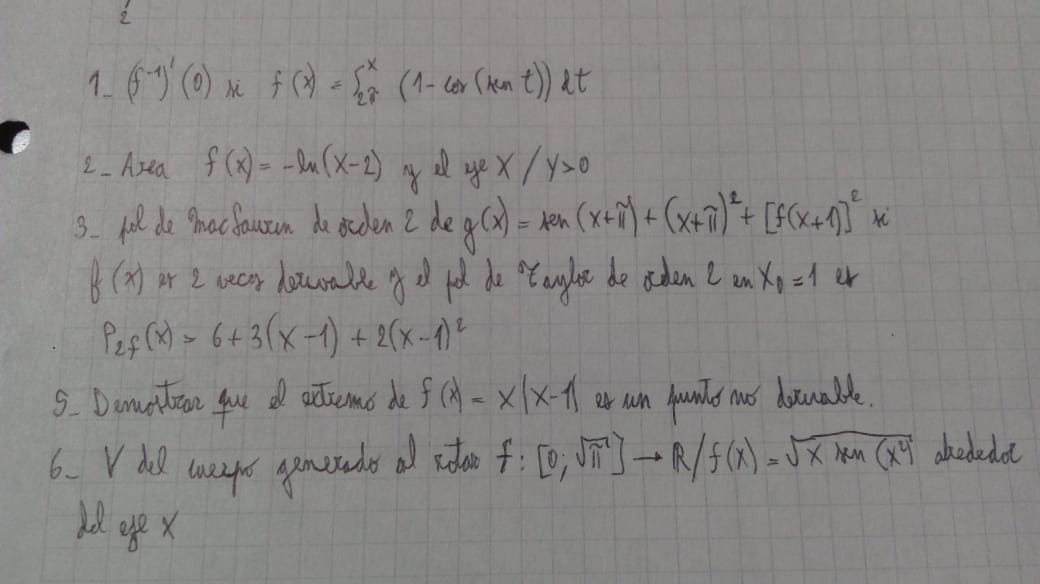 2
1_ (f⁻¹)' (0) si f(x) = ∫_{2π}^{x} (1 - cos(sen t)) dt
2_ Area f(x) = -ln(x-2) y el eje X / y>0
3_ pol de MacLaurin de orden 2 de g(x) = sen(x+π) + (x+π)² + [f(x+1)]² si
f(x) es 2 veces derivable y el pol de Taylor de orden 2 en x₀=1 es
P₂f(x) = 6+3(x-1) + 2(x-1)²
5_ Demostrar que el extremo de f(x) = x|x-1| es un punto no derivable.
6_ V del cuerpo generado al rotar f: [0; √π] → R/f(x) = √(x sen(x²)) alrededor
del eje X